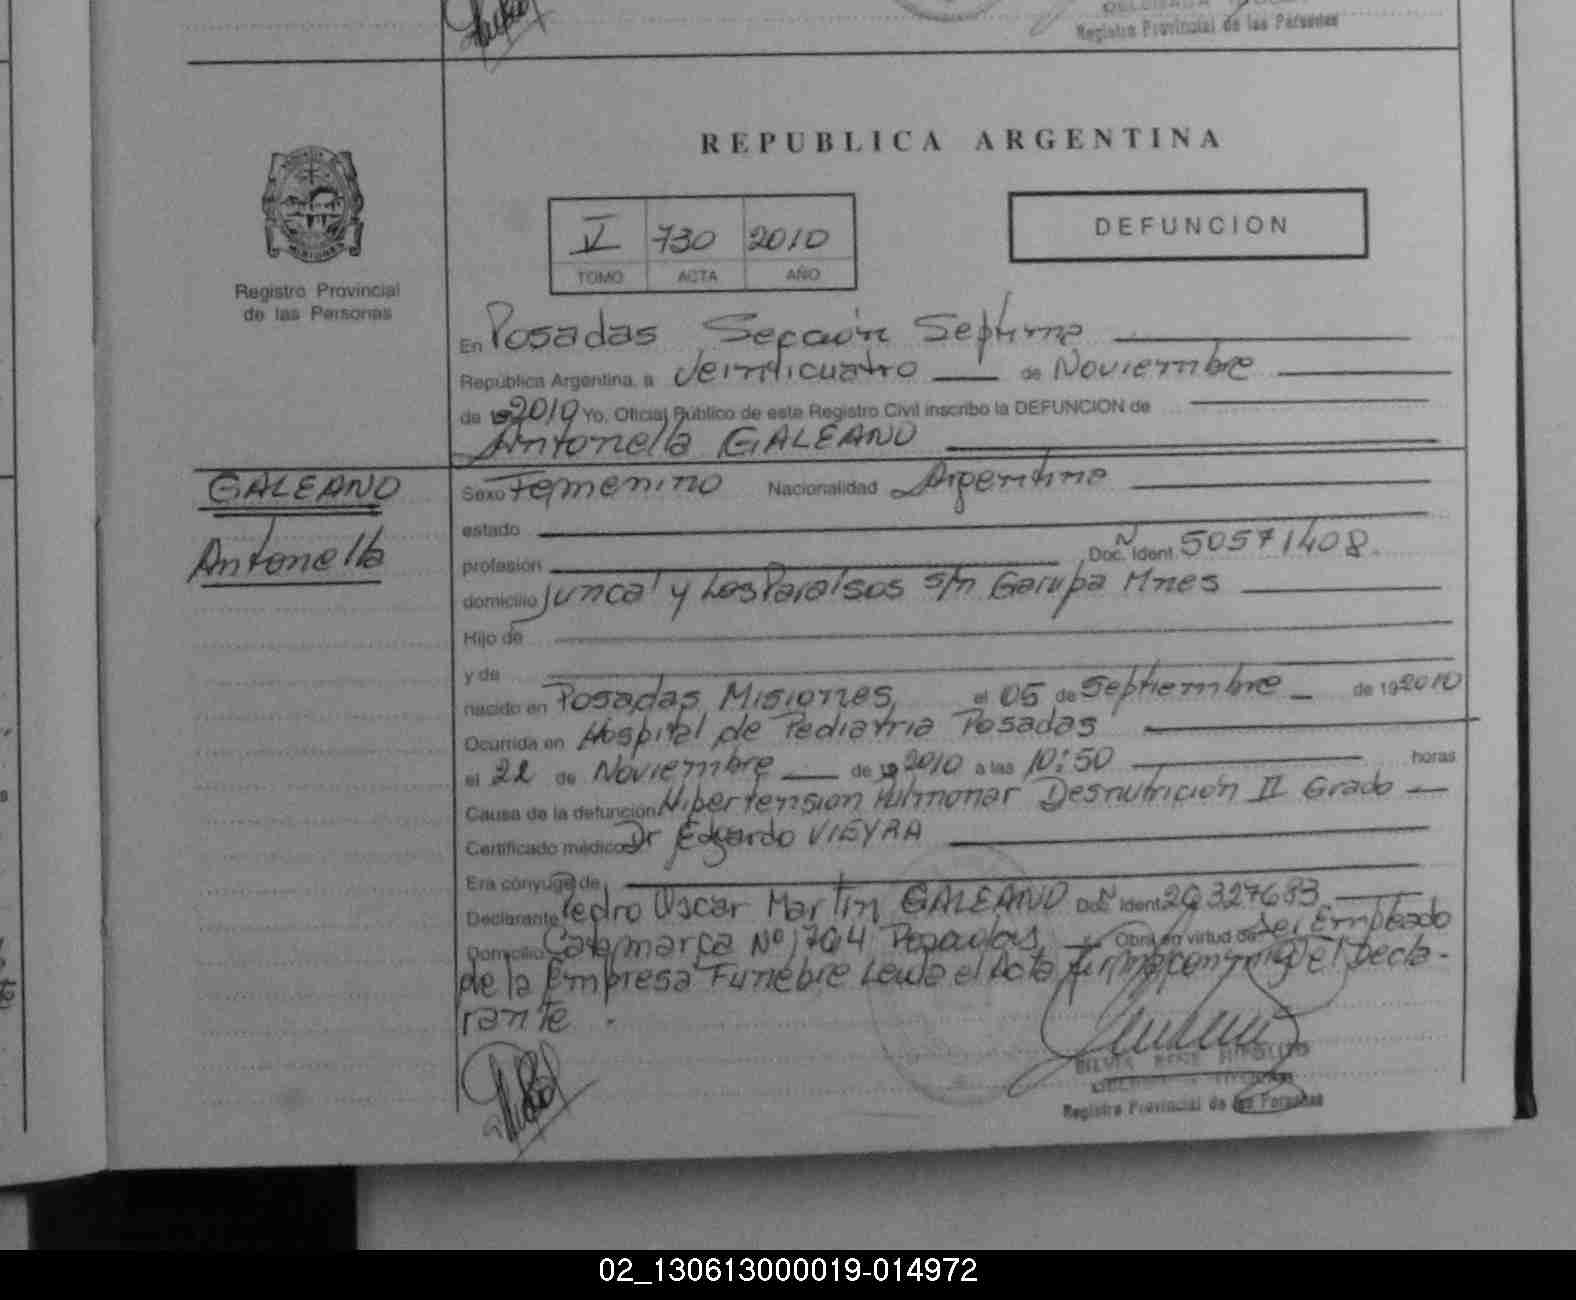 Registro Provincial de las Personas
REPUBLICA ARGENTINA
V 730 2010
TOMO ACTA AÑO
DEFUNCION
Registro Provincial
de las Personas
En Posadas Sección Septima
República Argentina, a Veinticuatro de Noviembre
de 2010 Yo, Oficial Público de este Registro Civil inscribo la DEFUNCION de
Antonella GALEANO
GALEANO
Antonella
Sexo Femenino Nacionalidad Argentina
estado
profesión Doc. Ident. N 50571408
domicilio Juncal y Los Paraisos s/n Garupa Mnes
Hijo de
y de
nacido en Posadas Misiones el 05 de Septiembre de 192010
Ocurrida en Hospital de Pediatria Posadas
el 22 de Noviembre de 2010 a las 10:50 horas
Causa de la defunción Hipertension Pulmonar Desnutrición II Grado
Certificado médico Dr Edgardo VIEYRA
Era cónyuge de
Declarante Pedro Oscar Martin GALEANO Doc. Ident. N 20327683
Domicilio Catamarca Nº 1704 Posadas Obra en virtud de Ser Empleado
de la Empresa Funebre Leida el Acta firma conmigo el Decla-
rante.
Registro Provincial de las Personas
02_130613000019-014972